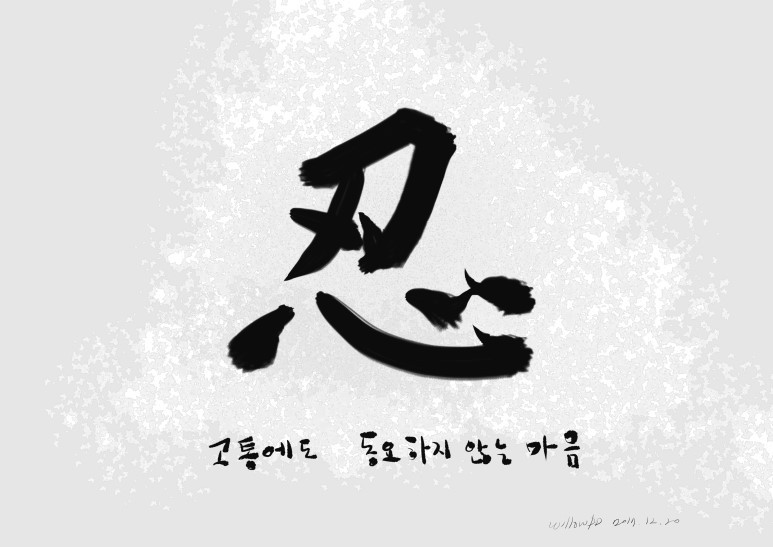 忍
고통에도 동요하지 않는 마음
willowpd 2017.12.20